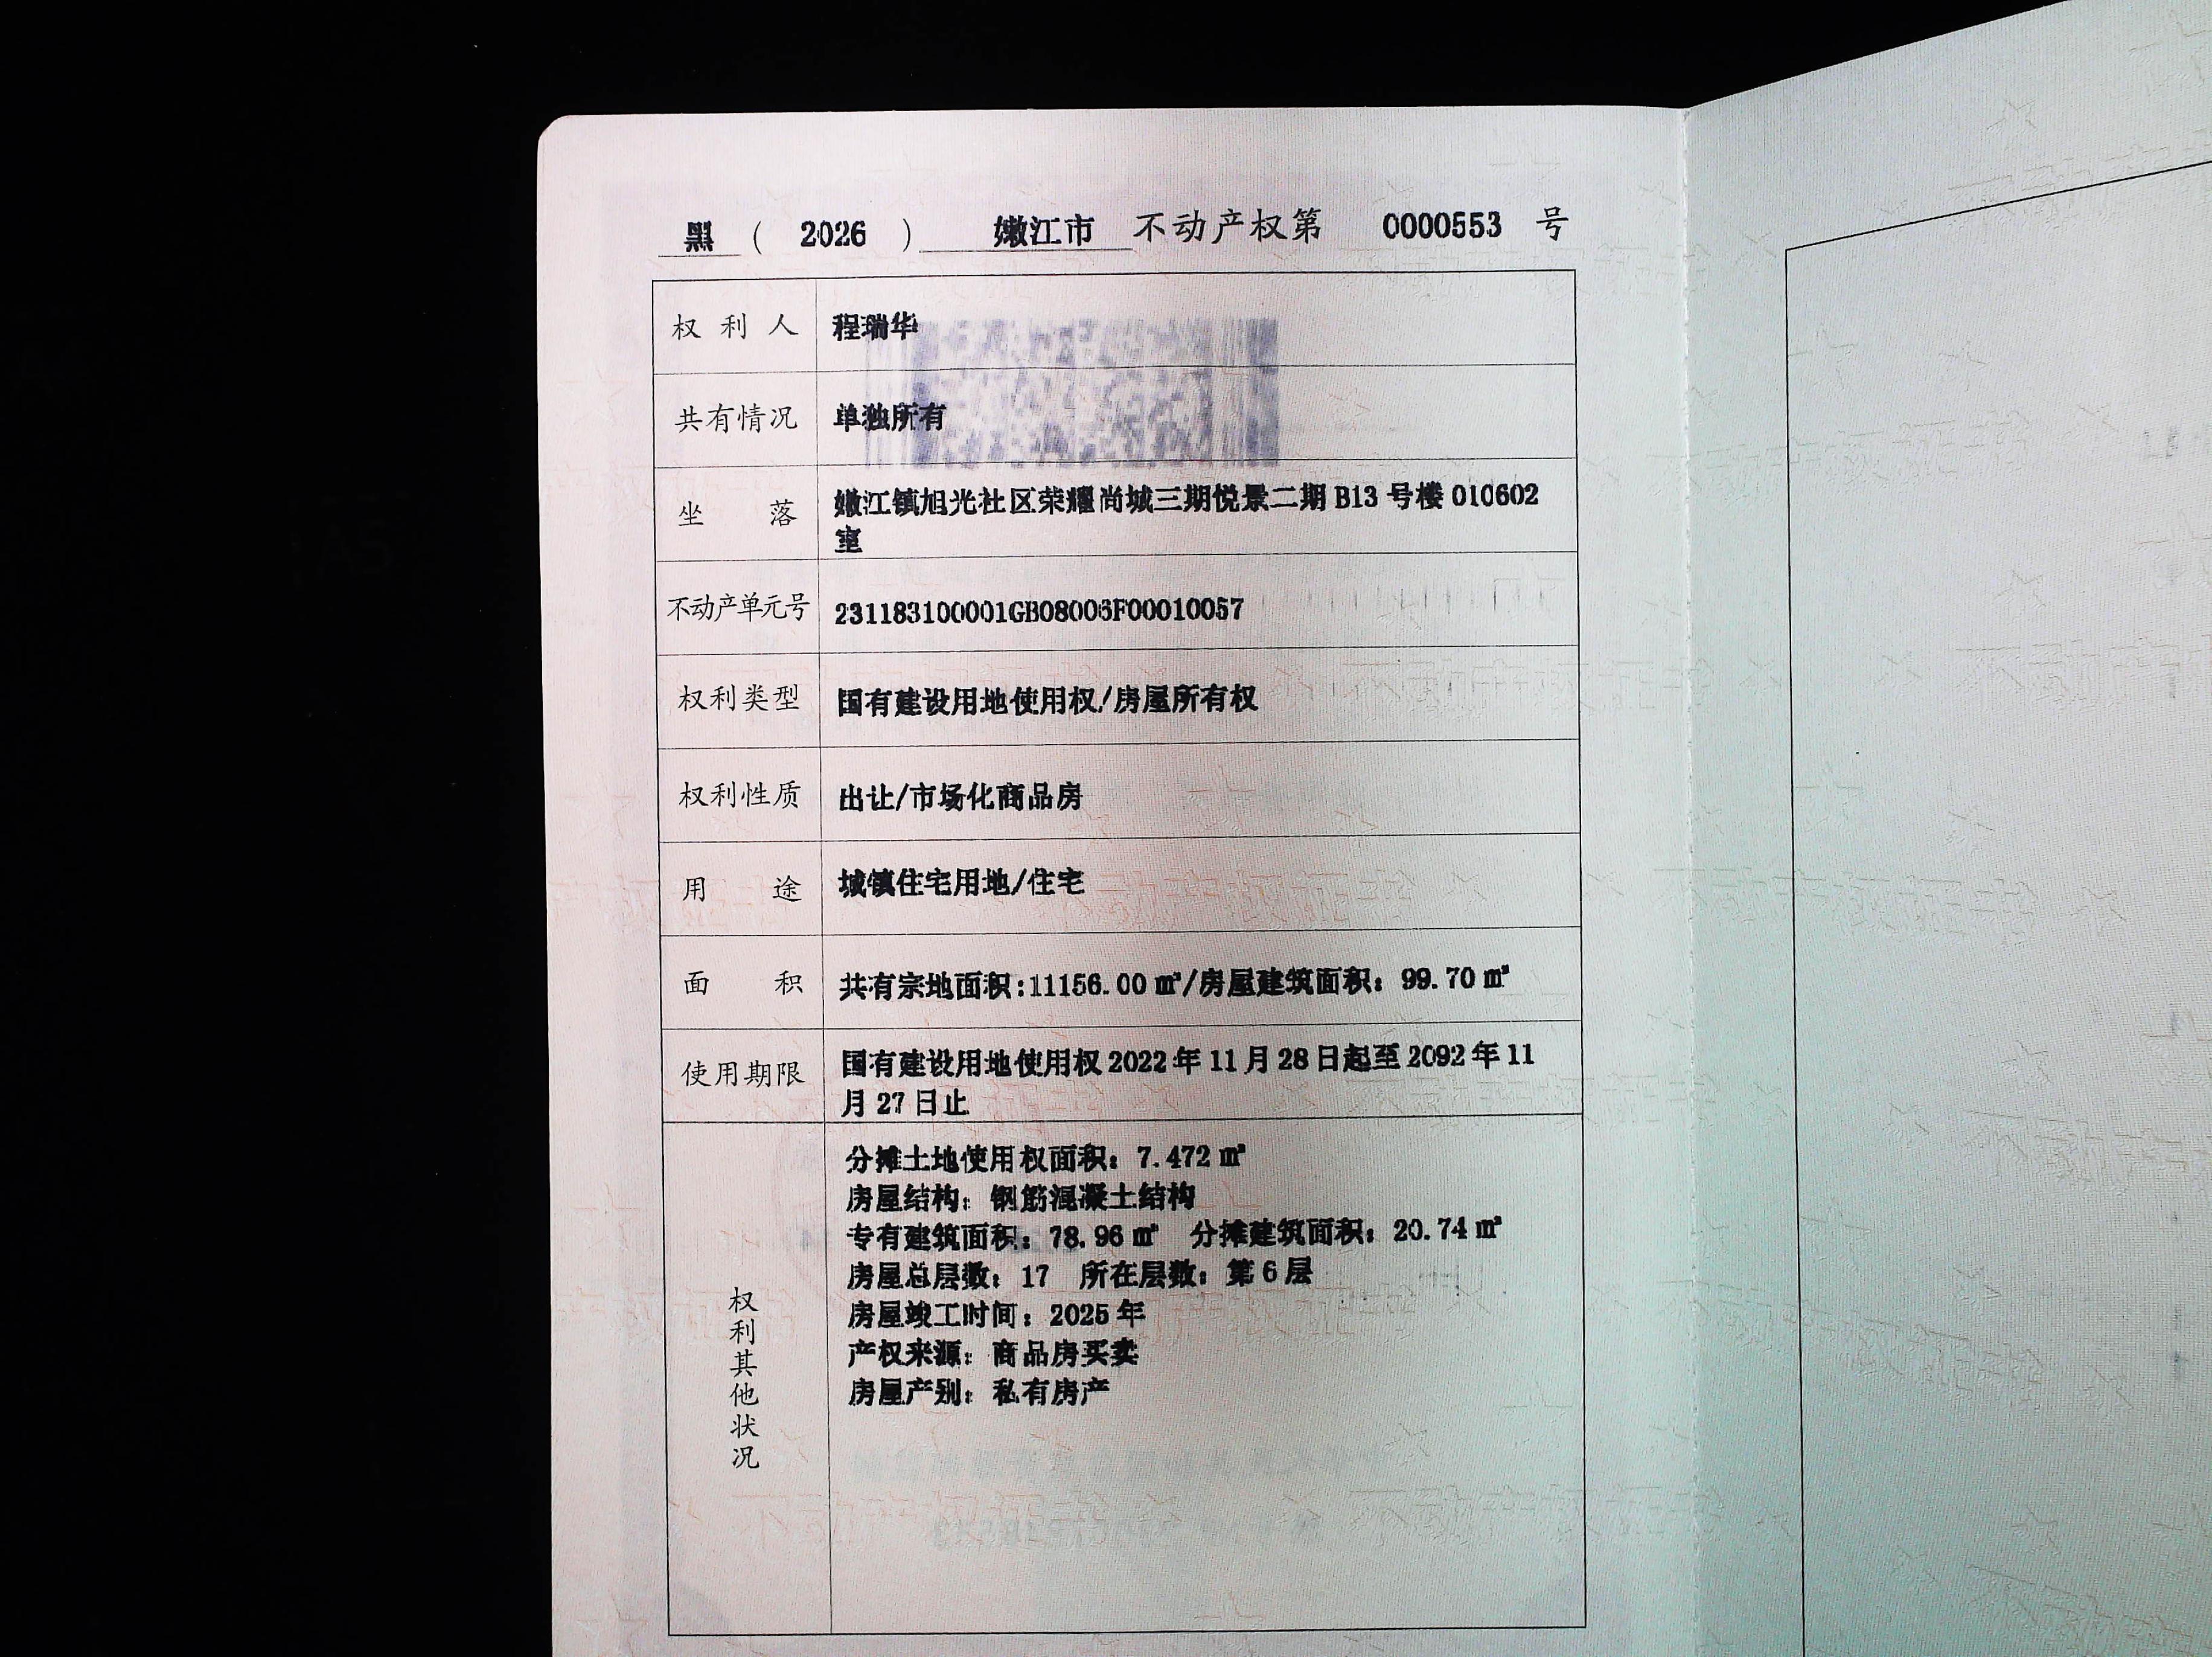 黑 ( 2026 ) 嫩江市 不动产权第 0000553 号
权利人 程瑞华
共有情况 单独所有
坐落 嫩江镇旭光社区荣耀尚城三期悦景二期 B13 号楼 010602
室
不动产单元号 231183100001GB08006F00010057
权利类型 国有建设用地使用权/房屋所有权
权利性质 出让/市场化商品房
用途 城镇住宅用地/住宅
面积 共有宗地面积:11156.00 ㎡/房屋建筑面积：99.70 ㎡
使用期限 国有建设用地使用权 2022 年 11 月 28 日起至 2092 年 11
月 27 日止
权利其他状况
分摊土地使用权面积：7.472 ㎡
房屋结构：钢筋混凝土结构
专有建筑面积：78.96 ㎡ 分摊建筑面积：20.74 ㎡
房屋总层数：17 所在层数：第 6 层
房屋竣工时间：2025 年
产权来源：商品房买卖
房屋产别：私有房产